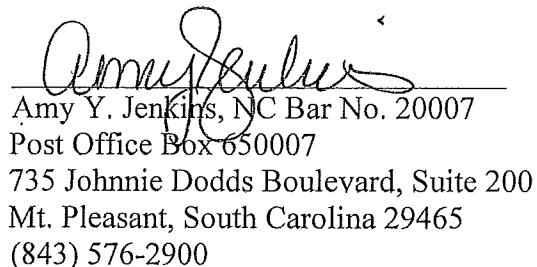 Amy Y. Jenkins
Amy Y. Jenkins, NC Bar No. 20007
Post Office Box 650007
735 Johnnie Dodds Boulevard, Suite 200
Mt. Pleasant, South Carolina 29465
(843) 576-2900